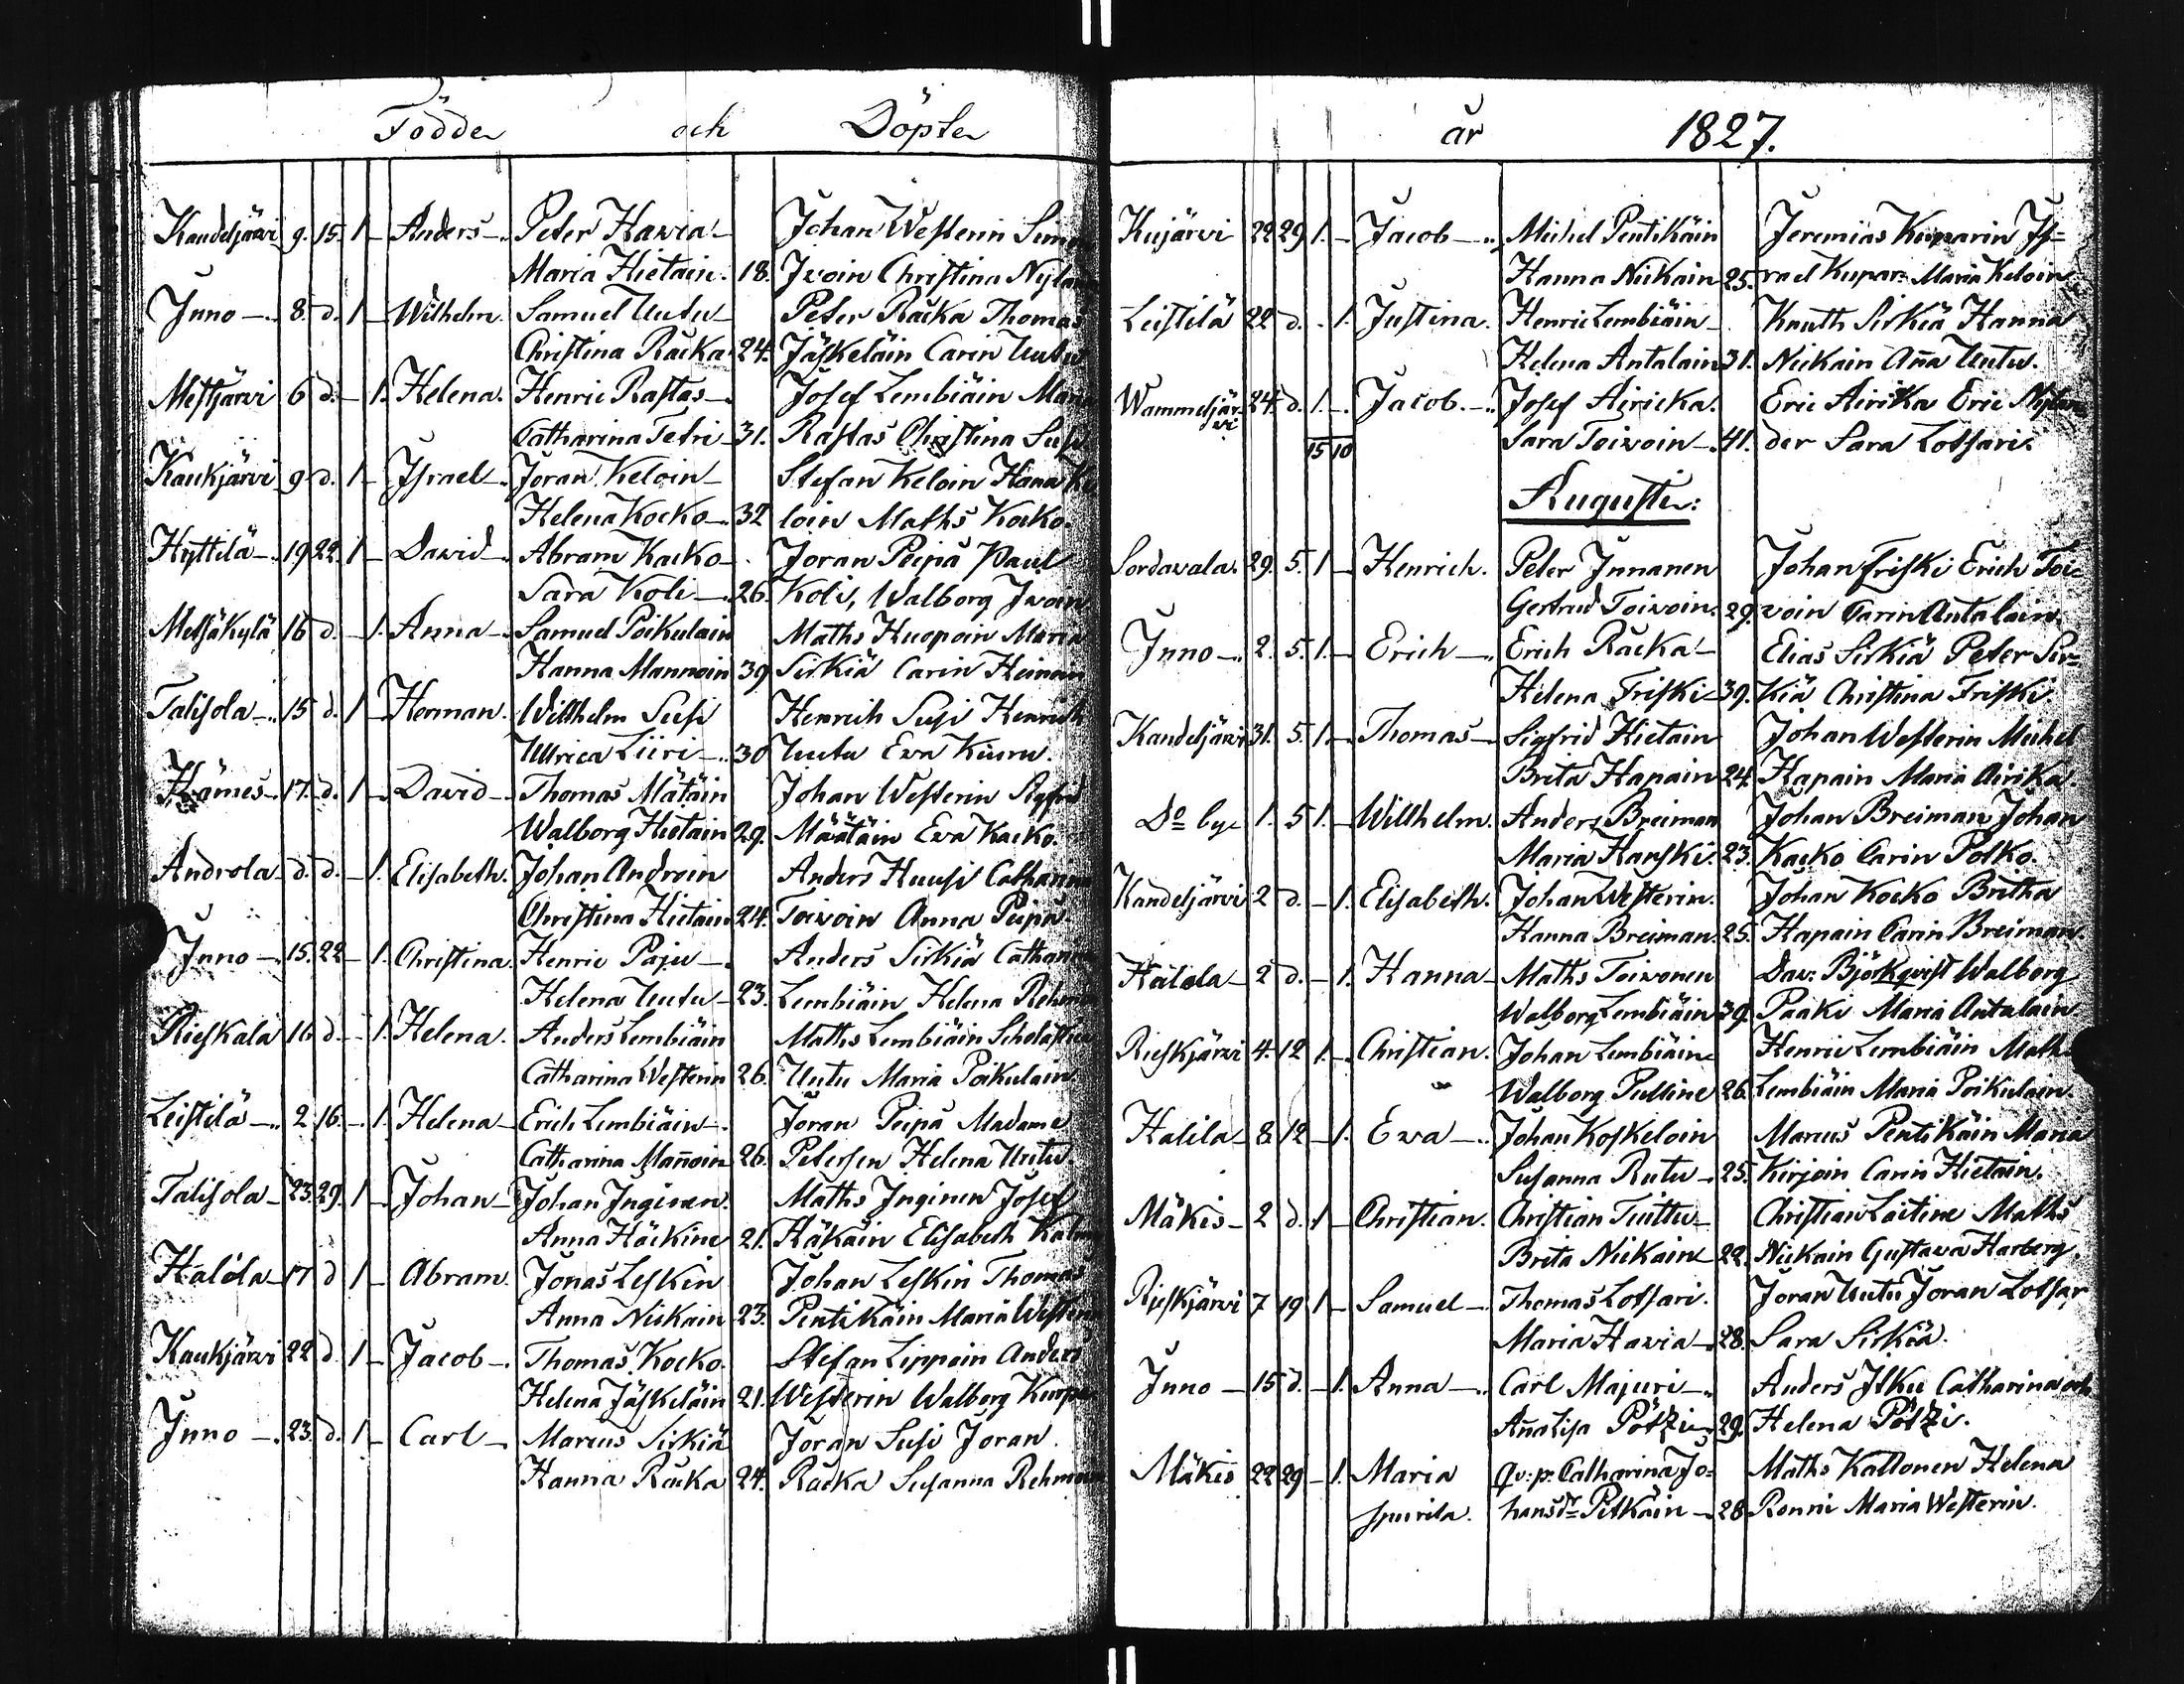 Födde och Döpte
Kandeljärvi 9. 15. 1 - Anders - Peter Hawia - Johan Westerin Simon
Maria Hietain. 18. Ivoin Christina Nylan
Inno - 8. d. 1 - Wilhelm. Samuel Uutu - Peter Räcka Thomas
Christina Räcka 24. Jäskeläin Carin Uutu
Mestjärvi 6 d. - 1. Helena. Henric Rastas - Josef Lembiäin Maria
Catharina Tetri - 31. Rastas Christina Susi
Kaukjärvi 9 d. 1 - Israel - Joran Keloin - Stefan Keloin Hana Ke
Helena Kocko - 32 loin Maths Kocko.
Hyttilä - 19 22. 1 - David - Abram Kacko - Joran Peipa Paul
Sara Koli - 26. Koli, Walborg Ivoin
Metsäkylä 16 d. - 1. Anna - Samuel Poikulain Maths Kuopoin Maria
Hanna Mannoin 39 Sirkiä Carin Heinoin
Talisola - 15 d. 1 - Herman. Willhelm Susi Henrich Susi Henrich
Ullrica Liiri - 30 Uutu Ewa Kiuru.
Hämes - 17. d. 1 - David - Thomas Mätäin Johan Westerin Sigfrid
Walborg Hietain 29. Määtäin Ewa Kacko.
Androla - d. d. - 1. Elisabeth. Johan Androin Anders Huusi Catharina
Christina Hietain 24. Toivoin Anna Peipa.
Inno - 15. 22 - 1. Christina. Henric Paju - Anders Sirkiä Catharina
Helena Uutu - 23. Lembiäin Helena Rehmoin
Rieskala 16 d. - 1. Helena. Anders Lembiäin Maths Lembiäin Scholastica
Catharina Westerin 26. Uutu Maria Poikulain.
Leistilä - 2 16. - 1. Helena - Erich Lembiäin - Joran Peipa Madame
Catharina Mañoin 26. Petersen Helena Uutu.
Talisola - 23. 29. 1 - Johan - Johan Inginen. Maths Inginen Josef
Anna Häckine 21. Häkäin Elisabeth
Halila - 17 d 1 - Abram Jonas Leskin Johan Leskin Thomas
Anna Niskain 23. Pentikäin Maria Westerin
Kaukjärvi 22 d. 1 - Jacob - Thomas Kocko. Stefan Lippoin Anders
Helena Jäskeläin 21. Westerin Walborg Kuopoin
Inno - 23. d. 1 - Carl - Marcus Sirkiä Joran Susi Joran
Hanna Räcka 24. Räcka Susanna Rehmoin
år 1827.
Kujärvi 22 29 1. - Jacob - Michel Pentikäin Jeremias Kuparin Is=
Hanna Niskain 25. rael Kupar: Maria Keloin
Leistilä 22 d. - 1. Justina. Henric Lembiäin - Knuth Sirkiä Hanna
Helena Antalain 31. Nickain Aña Uutu.
Wammeljär- 24. d. 1. - Jacob - Josef Airicka. Eric Airika Eric Nylan
vi 15 10 Sara Toivoin - 41. der Sara Lotsari.
Augusti:
Sordavala. 29. 5. 1 - Henrich. Peter Innanen Johan Friski Erich Toi=
Gertrud Toivoin. 29. voin Carin Antalain.
Inno - 2. 5. 1. - Erich - Erich Räcka - Elias Sirkiä Peter Sir=
Helena Friski - 39. kiä Christina Friski.
Kandeljärvi 31. 5. 1. - Thomas - Sigfrid Hietain Johan Westerin Michel
Brita Hapain 24. Hapain Maria Airika.
Do by 1. 5 1. - Willhelm. Anders Breiman Johan Breiman Johan
Maria Hanski. 23. Kacko Carin Polko.
Kandeljärvi 2 d. - 1. Elisabeth. Johan Westerin. Johan Kocko Britha
Hanna Breiman. 25. Hapain Carin Breiman.
Halila - 2 d. - 1. Hanna - Maths Toivonen Dav: Björkqvist Walborg
Walborg Lembiäin 39. Paaki Maria Antalain.
Rieskjärvi 4. 12 1. - Christian. Johan Lembiäin Henric Lembiäin Maths
Walborg Pulline 26. Lembiäin Maria Poikulain.
Halila - 8. 12 - 1. Ewa - Johan Koskeloin Marcus Pentikäin Maria
Susanna Rutu - 25. Kirjoin Carin Hietain.
Mäkis - 2 d. 1 - Christian. Christian Tuittu - Christian Laitine Maths
Brita Nickain - 22. Nickain Gustava Harberg.
Rieskjärvi 7 19 1 - Samuel - Thomas Lotsari. Joran Uutu Joran Lotsar
Maria Havia - 28. Sara Sirkiä.
Inno - 15 d. - 1. Anna - Carl Majuri - Anders Ilku Catharina och
Aña Lisa Pötzi - 29. Helena Pötzi.
Mäkis 22 29 - 1. Maria Qv: p: Catharina Jo= Maths Kattonen Helena
spurila. hansdr Pitkäin - 28 Ronni Maria Westerin.